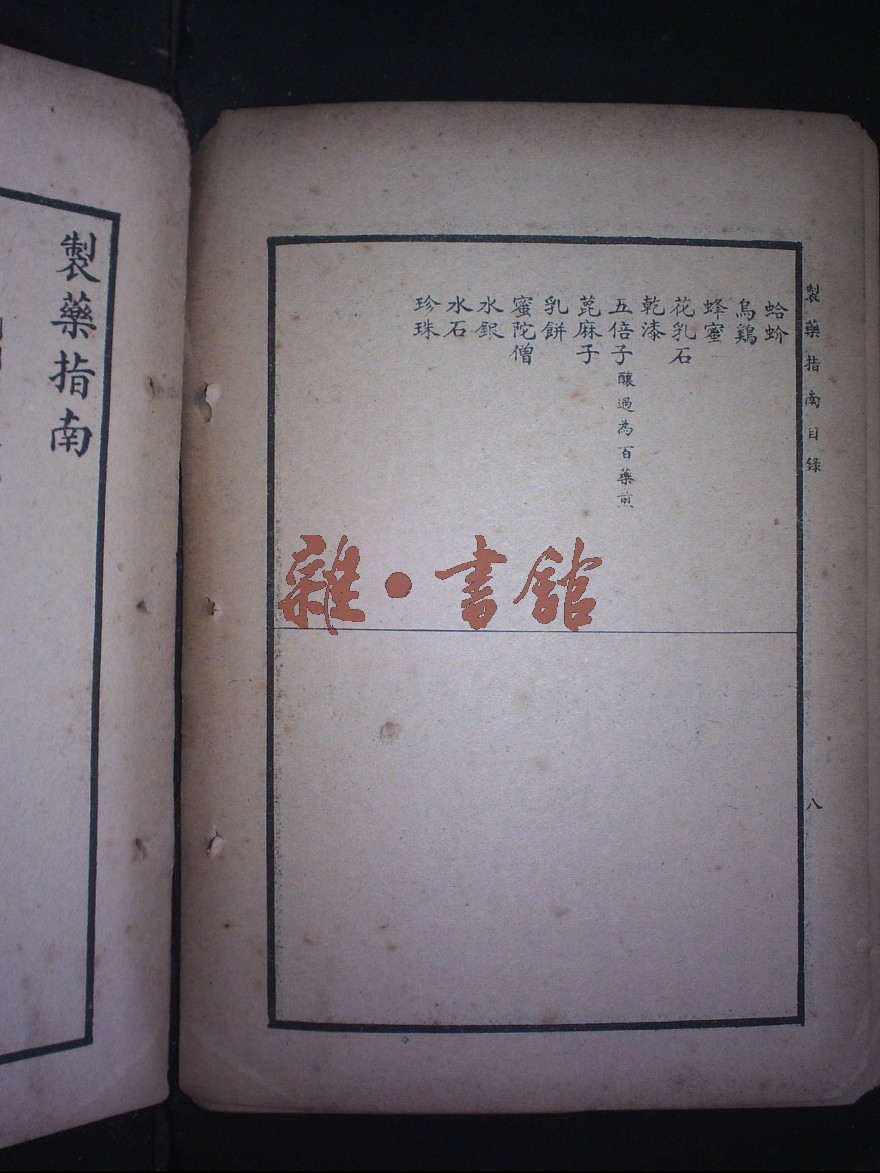 製藥指南目錄
蛤蚧
烏鷄
蜂蜜
花乳石
乾漆
五倍子 釀過為百藥煎
蓖麻子
乳餅
蜜陀僧
水銀
水石
珍珠
八
製藥指南
雜·書館